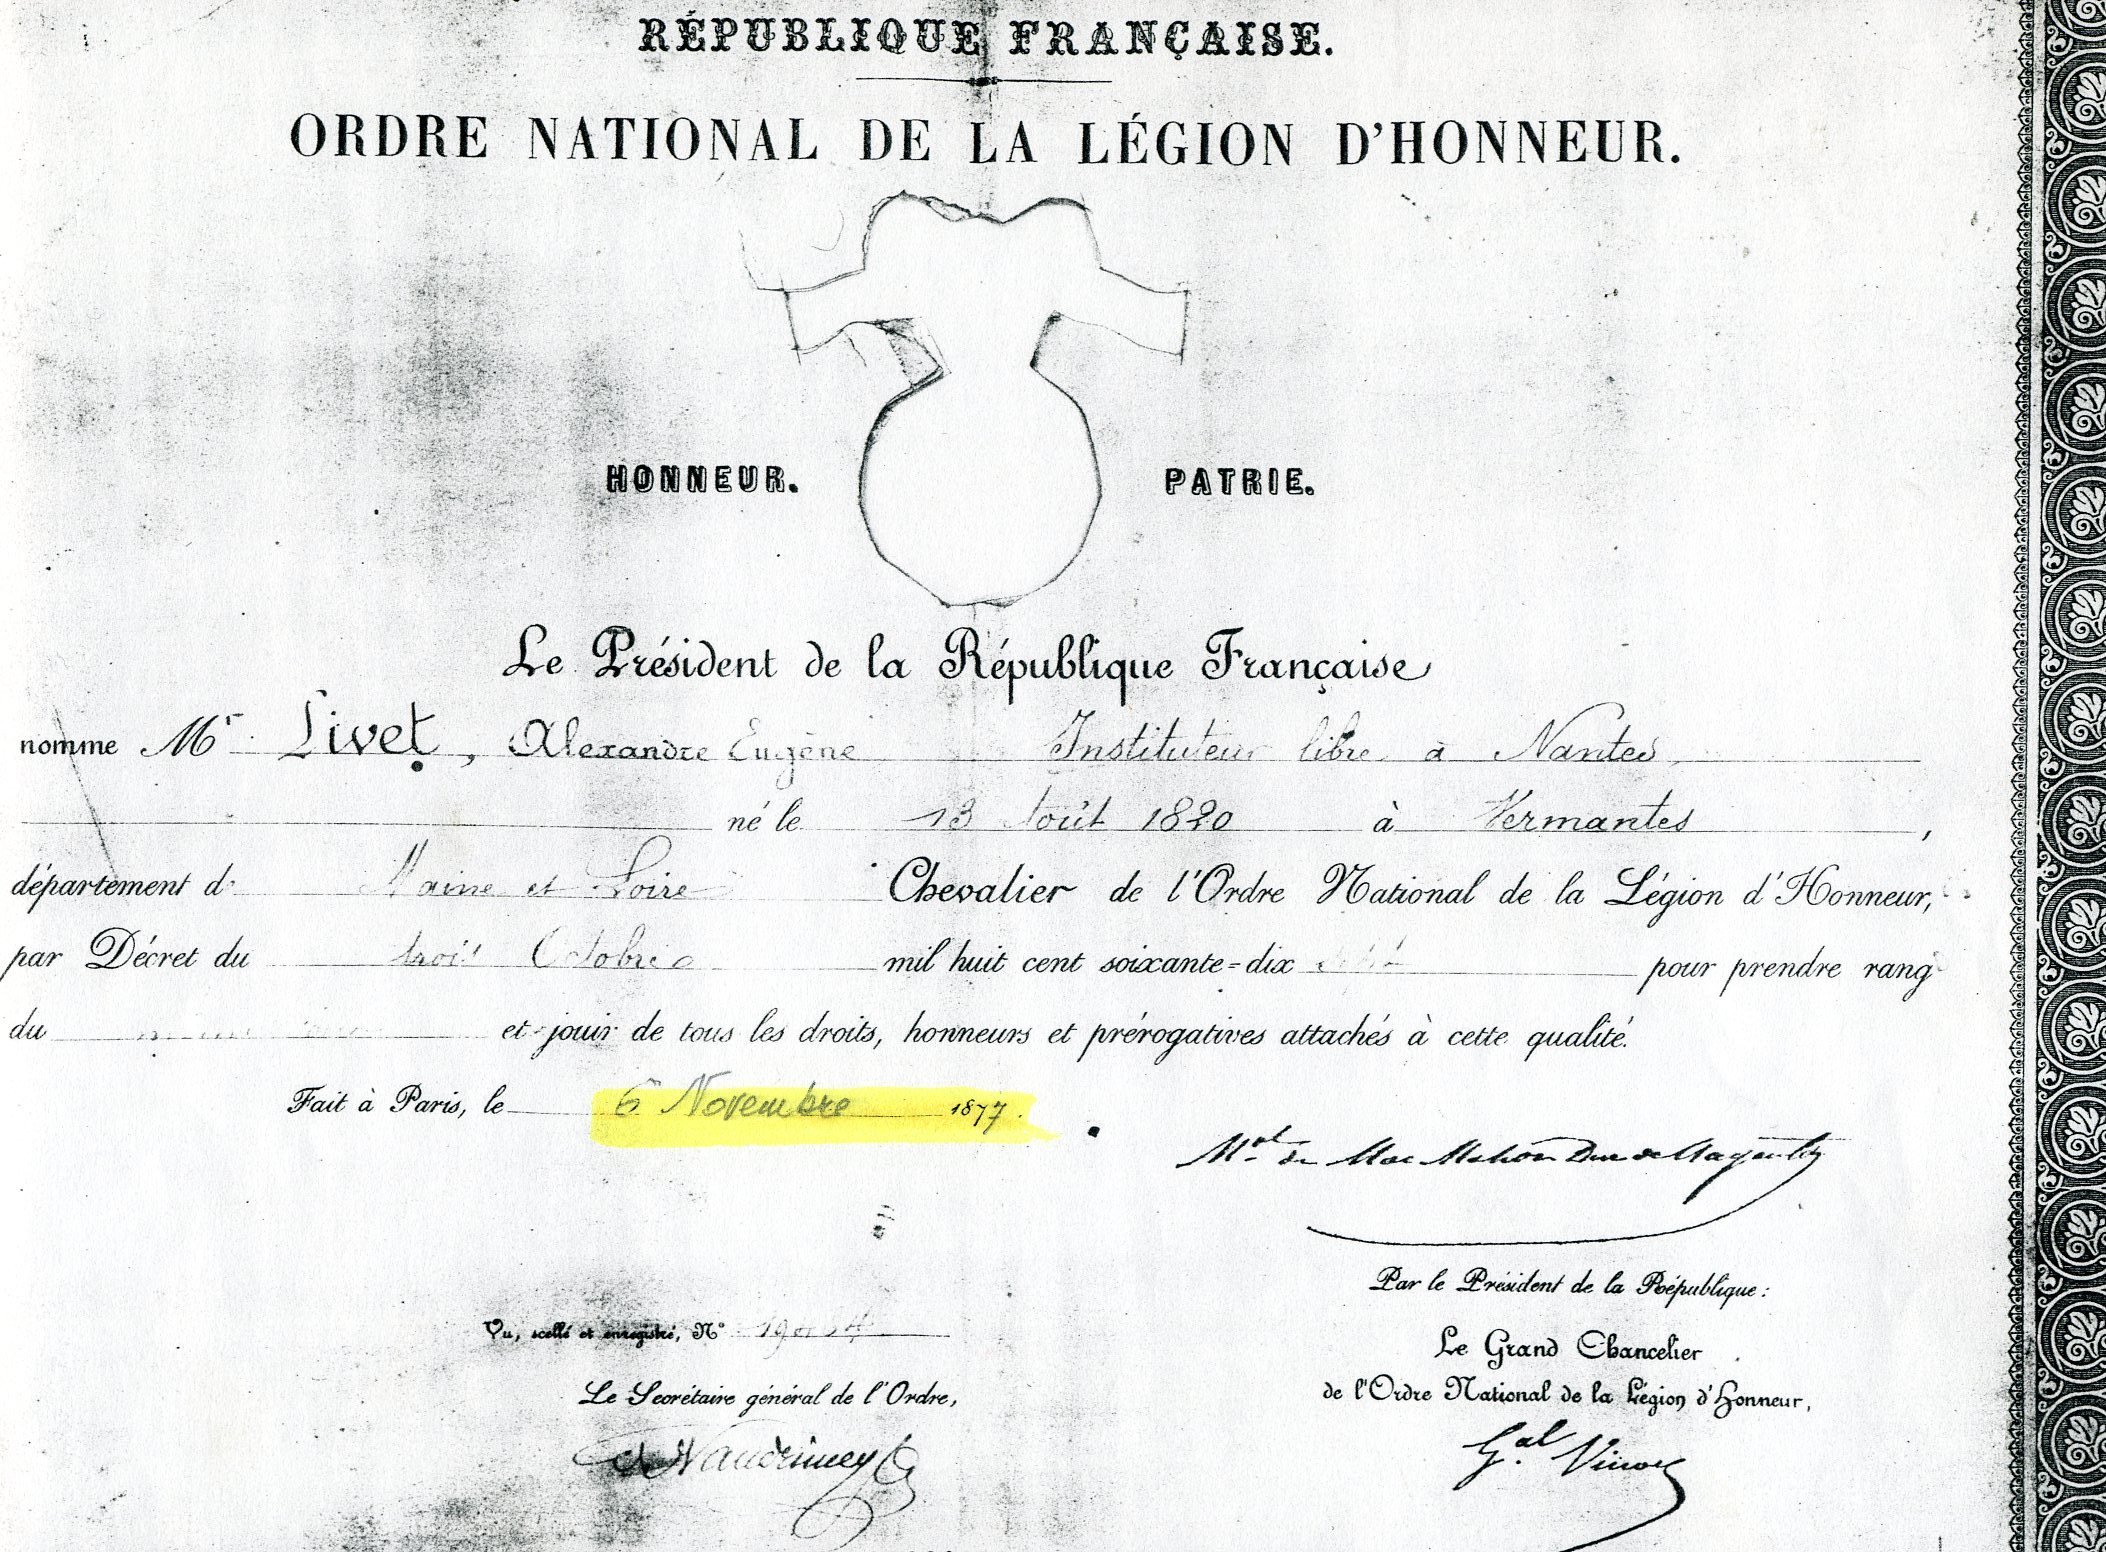 RÉPUBLIQUE FRANÇAISE.
ORDRE NATIONAL DE LA LÉGION D'HONNEUR.
HONNEUR. PATRIE.
Le Président de la République Française
nomme Mr. Livet, Alexandre Eugène Instituteur libre à Nantes
né le 13 Août 1820 à Vermantes,
département d Maine et Loire Chevalier de l'Ordre National de la Légion d'Honneur,
par Décret du trois Octobre mil huit cent soixante-dix sept pour prendre rang
du et jouir de tous les droits, honneurs et prérogatives attachés à cette qualité.
Fait à Paris, le 6 Novembre 1877.
Mal de Mac Mahon Duc de Magenta
Par le Président de la République:
Vu, scellé et enregistré, N°
Le Grand Chancelier
Le Secrétaire général de l'Ordre,
de l'Ordre National de la Légion d'Honneur,
Gal Vinoy